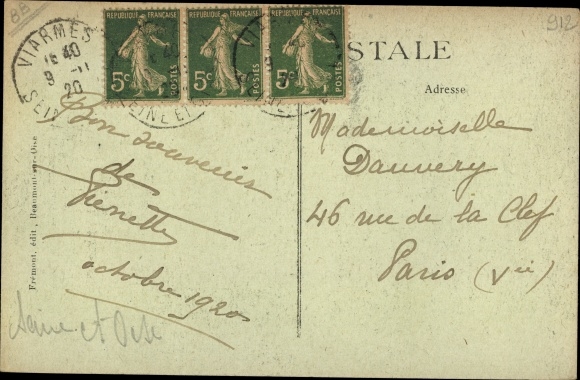 8B
912
VIARMES
16 40
9 -11
20
SEINE ET
RÉPUBLIQUE FRANÇAISE
5c
POSTES
RÉPUBLIQUE FRANÇAISE
5c
POSTES
RÉPUBLIQUE FRANÇAISE
5c
POSTES
STALE
Adresse
Bon souvenir
de
octobre 1920
Mademoiselle
Dauvery
46 rue de la Clef
Paris (Ve)
Frémont, édit., Beaumont-sur-Oise
Seine et Oise